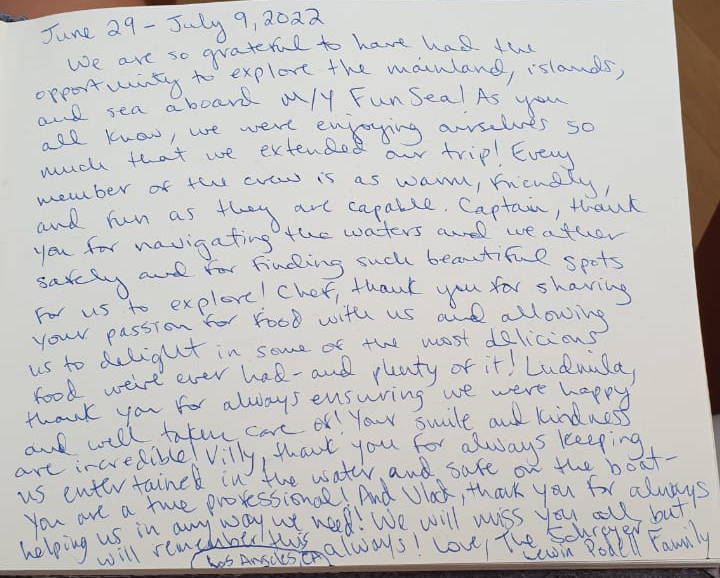 June 29 - July 9, 2022
We are so grateful to have had the
opportunity to explore the mainland, islands,
and sea aboard M/Y Fun Sea! As you
all know, we were enjoying ourselves so
much that we extended our trip! Every
member of the crew is as warm, friendly,
and fun as they are capable. Captain, thank
you for navigating the waters and weather
safely and for finding such beautiful spots
for us to explore! Chef, thank you for sharing
your passion for food with us and allowing
us to delight in some of the most delicious
food we've ever had - and plenty of it! Ludmila,
thank you for always ensuring we were happy
and well taken care of! Your smile and kindness
are incredible! Villy, thank you for always keeping
us entertained in the water and safe on the boat -
you are a true professional! And Vlad, thank you for always
helping us in any way we need! We will miss you all, but
will remember this always! Love, The Schreyer -
Los Angeles, CA
Lewin Podell Family